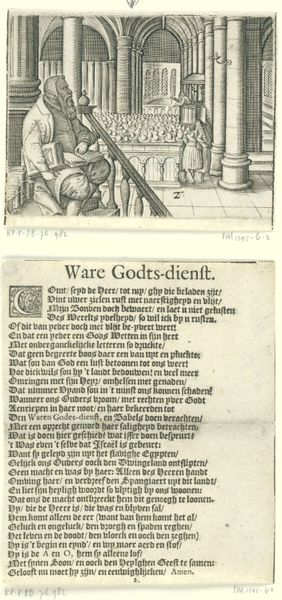 2
RP-P-OB-76.982
FM1515-G-2
Ware Godts-dienst.
COmt/ seyd de Heer/ tot my/ ghy die beladen zijt/
Vint uwer zielen rust met naerstigheyd en vlijt/
Mijn Bonden doch bewaert/ en laet u niet gelusten
Des Werelts ydelheyd/ so wil ick by u rusten.
Of dit van yeder doch met vlijt be-yvert wert!
En dat een yeder een Gods Wetten in sijn hert
Met onverganckelijcke letteren so druckte/
Dat geen begeerte boos daer een van uyt en pluckte;
Wat sou dan God een lust betoonen tot ons wert!
Hoe dickwils sou hy 't landt bedouwen! en veel meer
Omringen met sijn Hey/ omhelsen met genaden/
Dat nimmer Vyand sou in 't minst ons konnen schaden!
Wanneer ons Ouders vroom/ met rechten yver Godt
Aenriepen in haer noot/ en haer bekeerden tot
Den Waren Godes-dienst, en Babels doen verachten/
Met een oprecht gemoed haer saligheyd betrachten/
Wat is doen hier geschied wat isser doen bespeurt?
't Was even 't selve dat Israël is gebeurt:
Want so geleyd zijn uyt het slavighe Egypten/
Gelijck ons Ouders oock den Dwingeland ontslipten/
Geen macht en was by haer: Alleen des Heeren handt
Ombing haer/ en verdreef den Spangiaert uyt dit landt/
En liet sijn heyligh woordt so vlytigh by ons woonen:
Dat ons de macht ontbreeckt hem dit genoegh te loonen.
Hy/ die de Heere is/ die was en blyven sal/
Hem komt alleen de eer (want van hem komt het al/
Geluck en ongeluck/ den droegh en spaden reghen/
Het leven en de doodt/ den vloeck en oock den zeghen)
Hy is 't begin en eynd'/ en wy maer aerd en stof/
Hy is de A en O, hem zy alleene lof/
Met synen Soon/ en oock den Heylighen Geest te samen:
Gelooft nu moet hy zijn/ en eeuwighlijcken/ Amen.
2.
RP-P-OB-76.982
FM1515-G2